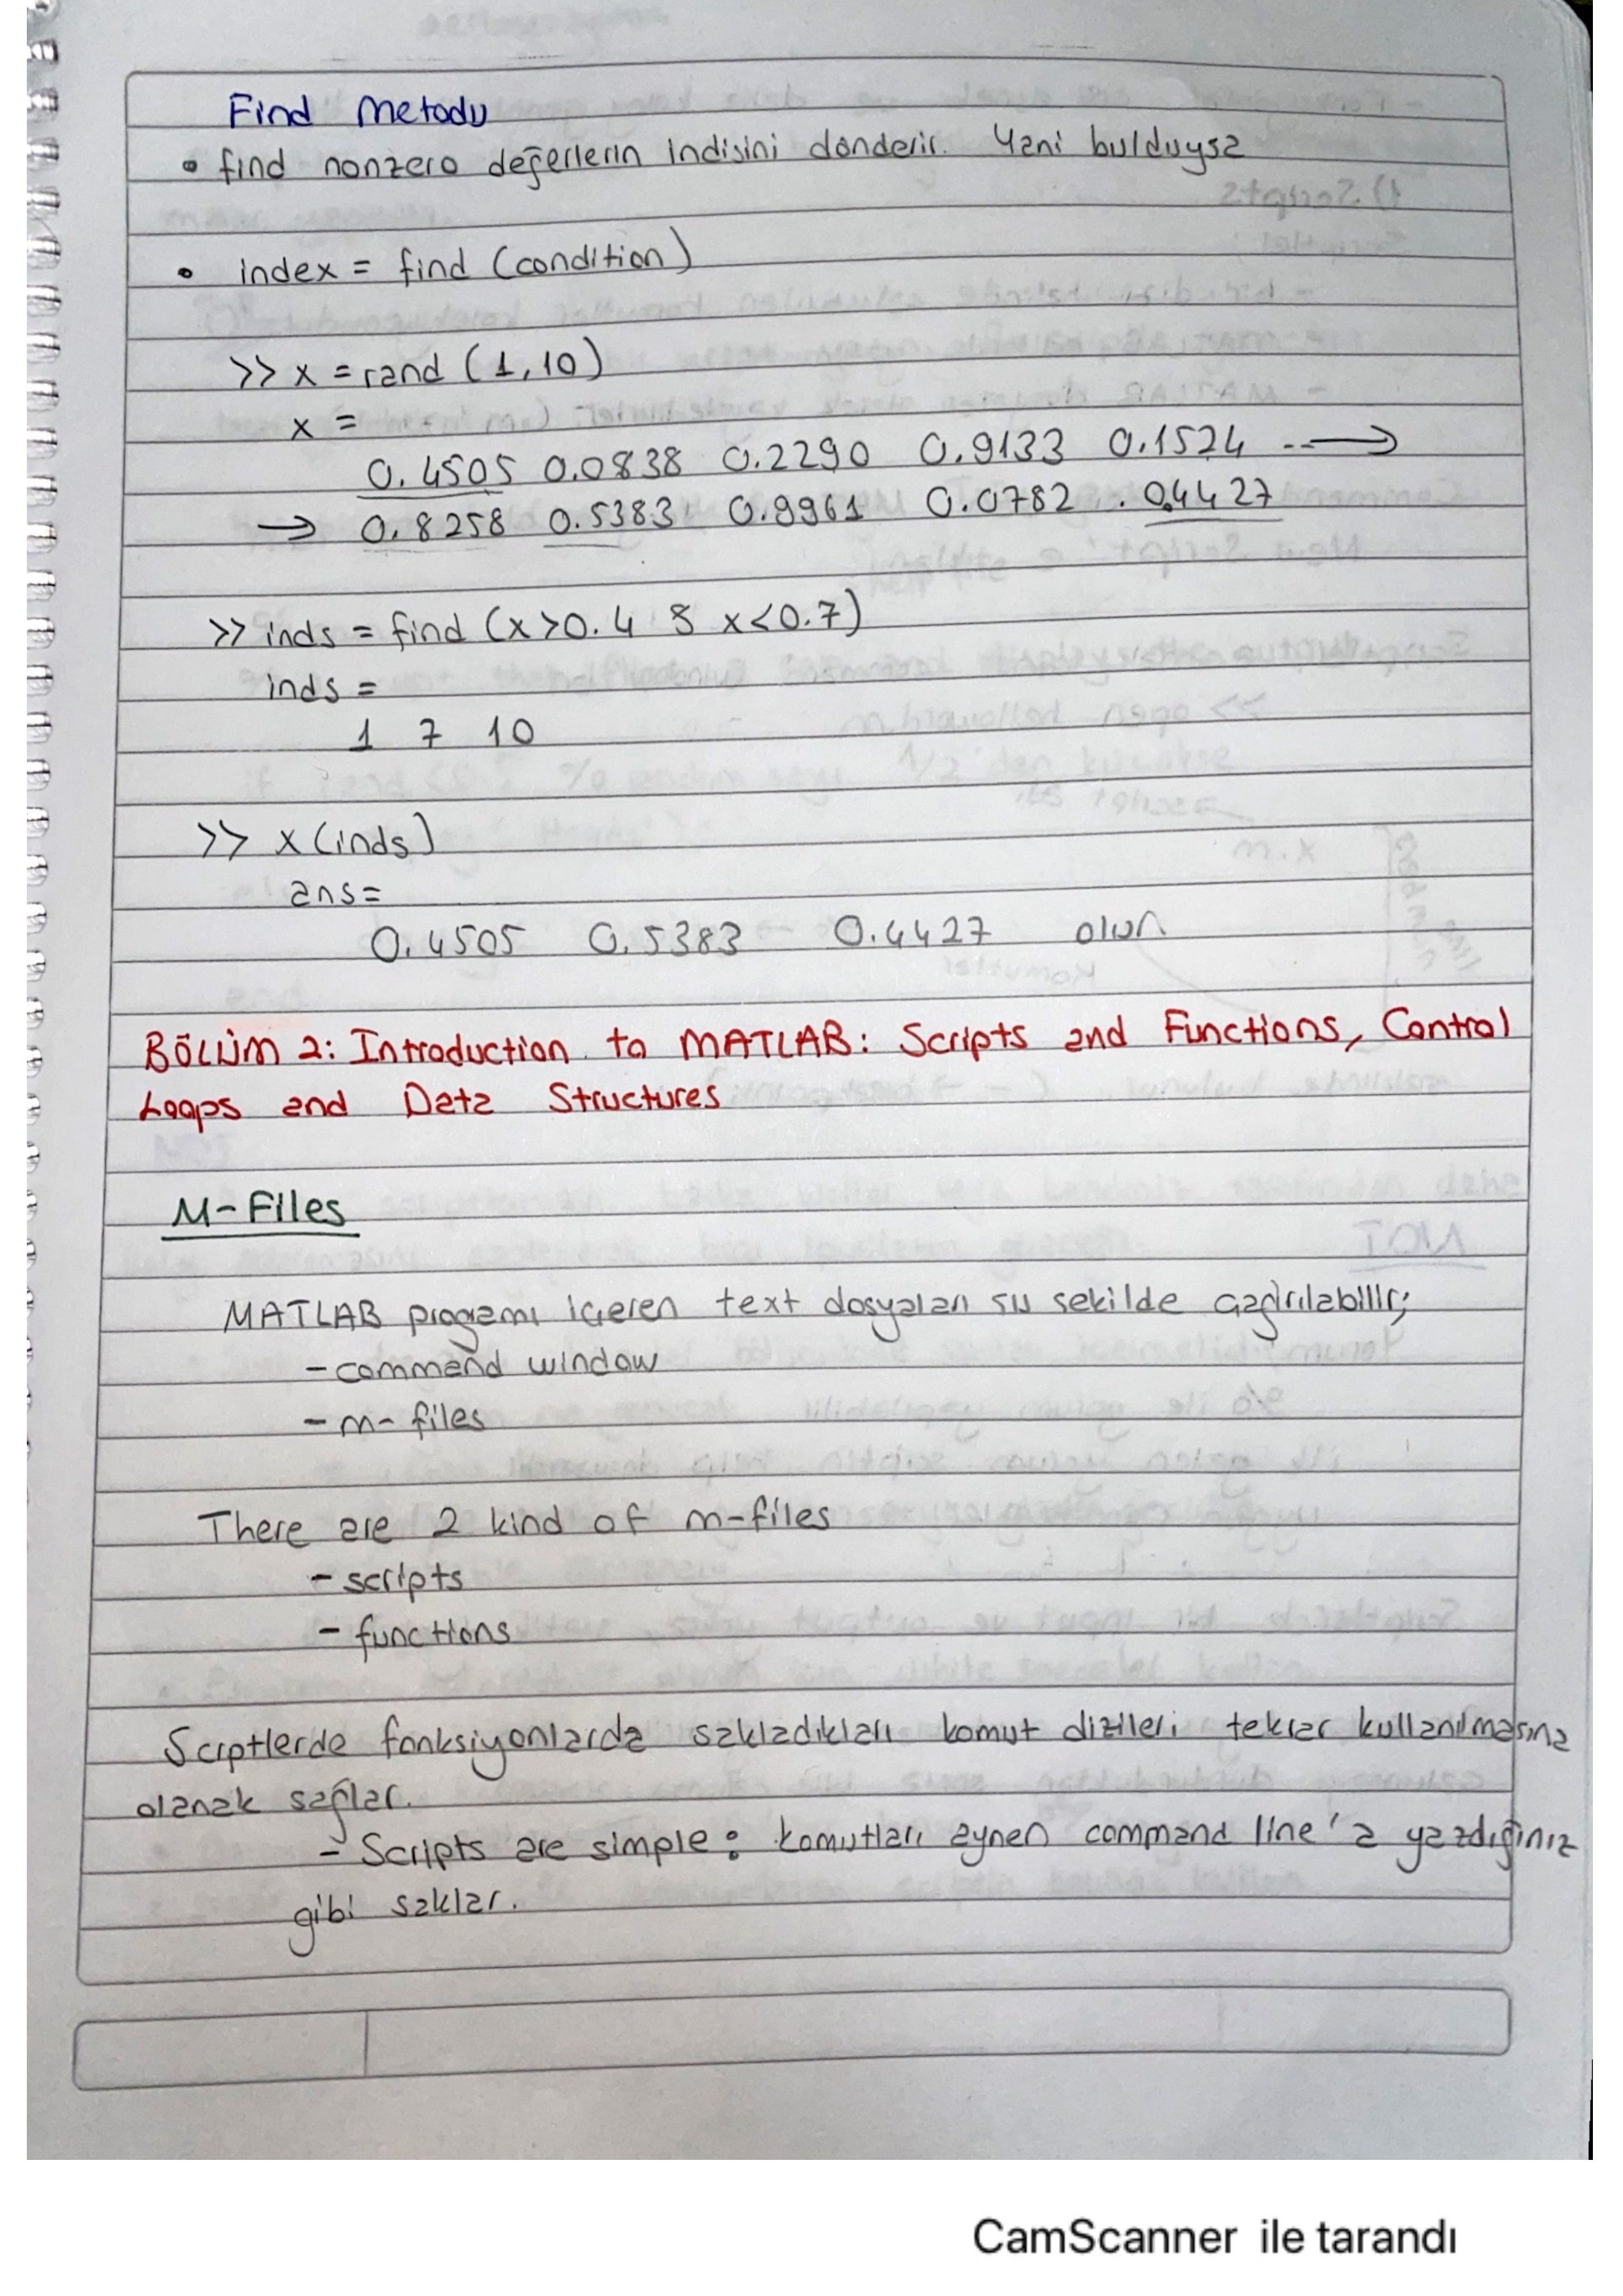 Find Metodu
• find nonzero değerlerin indisini dönderir. Yani bulduysa
• index = find (condition)
>> x = rand (1,10)
x =
0.4505 0.0838 0.2290 0.9133 0.1524 --→
→ 0.8258 0.5383 0.9961 0.0782 . 0.4427
>> inds = find (x>0.4 & x<0.7)
inds =
1 7 10
>> x(inds)
ans=
0.4505 0.5383 0.4427 olur.
BÖLÜM 2: Introduction to MATLAB: Scripts and Functions, Control
Loops and Data Structures
M-Files
MATLAB programı içeren text dosyaları su sekilde çağırılabilir;
- command window
- m-files
There are 2 kind of m-files
- scripts
- functions
Scriptlerde fonksiyonlarda sakladıkları komut dizileri tekrar kullanılmasına
olanak sağlar.
- Scripts are simple: komutları aynen command line'a yazdığınız
gibi saklar.
CamScanner ile tarandı